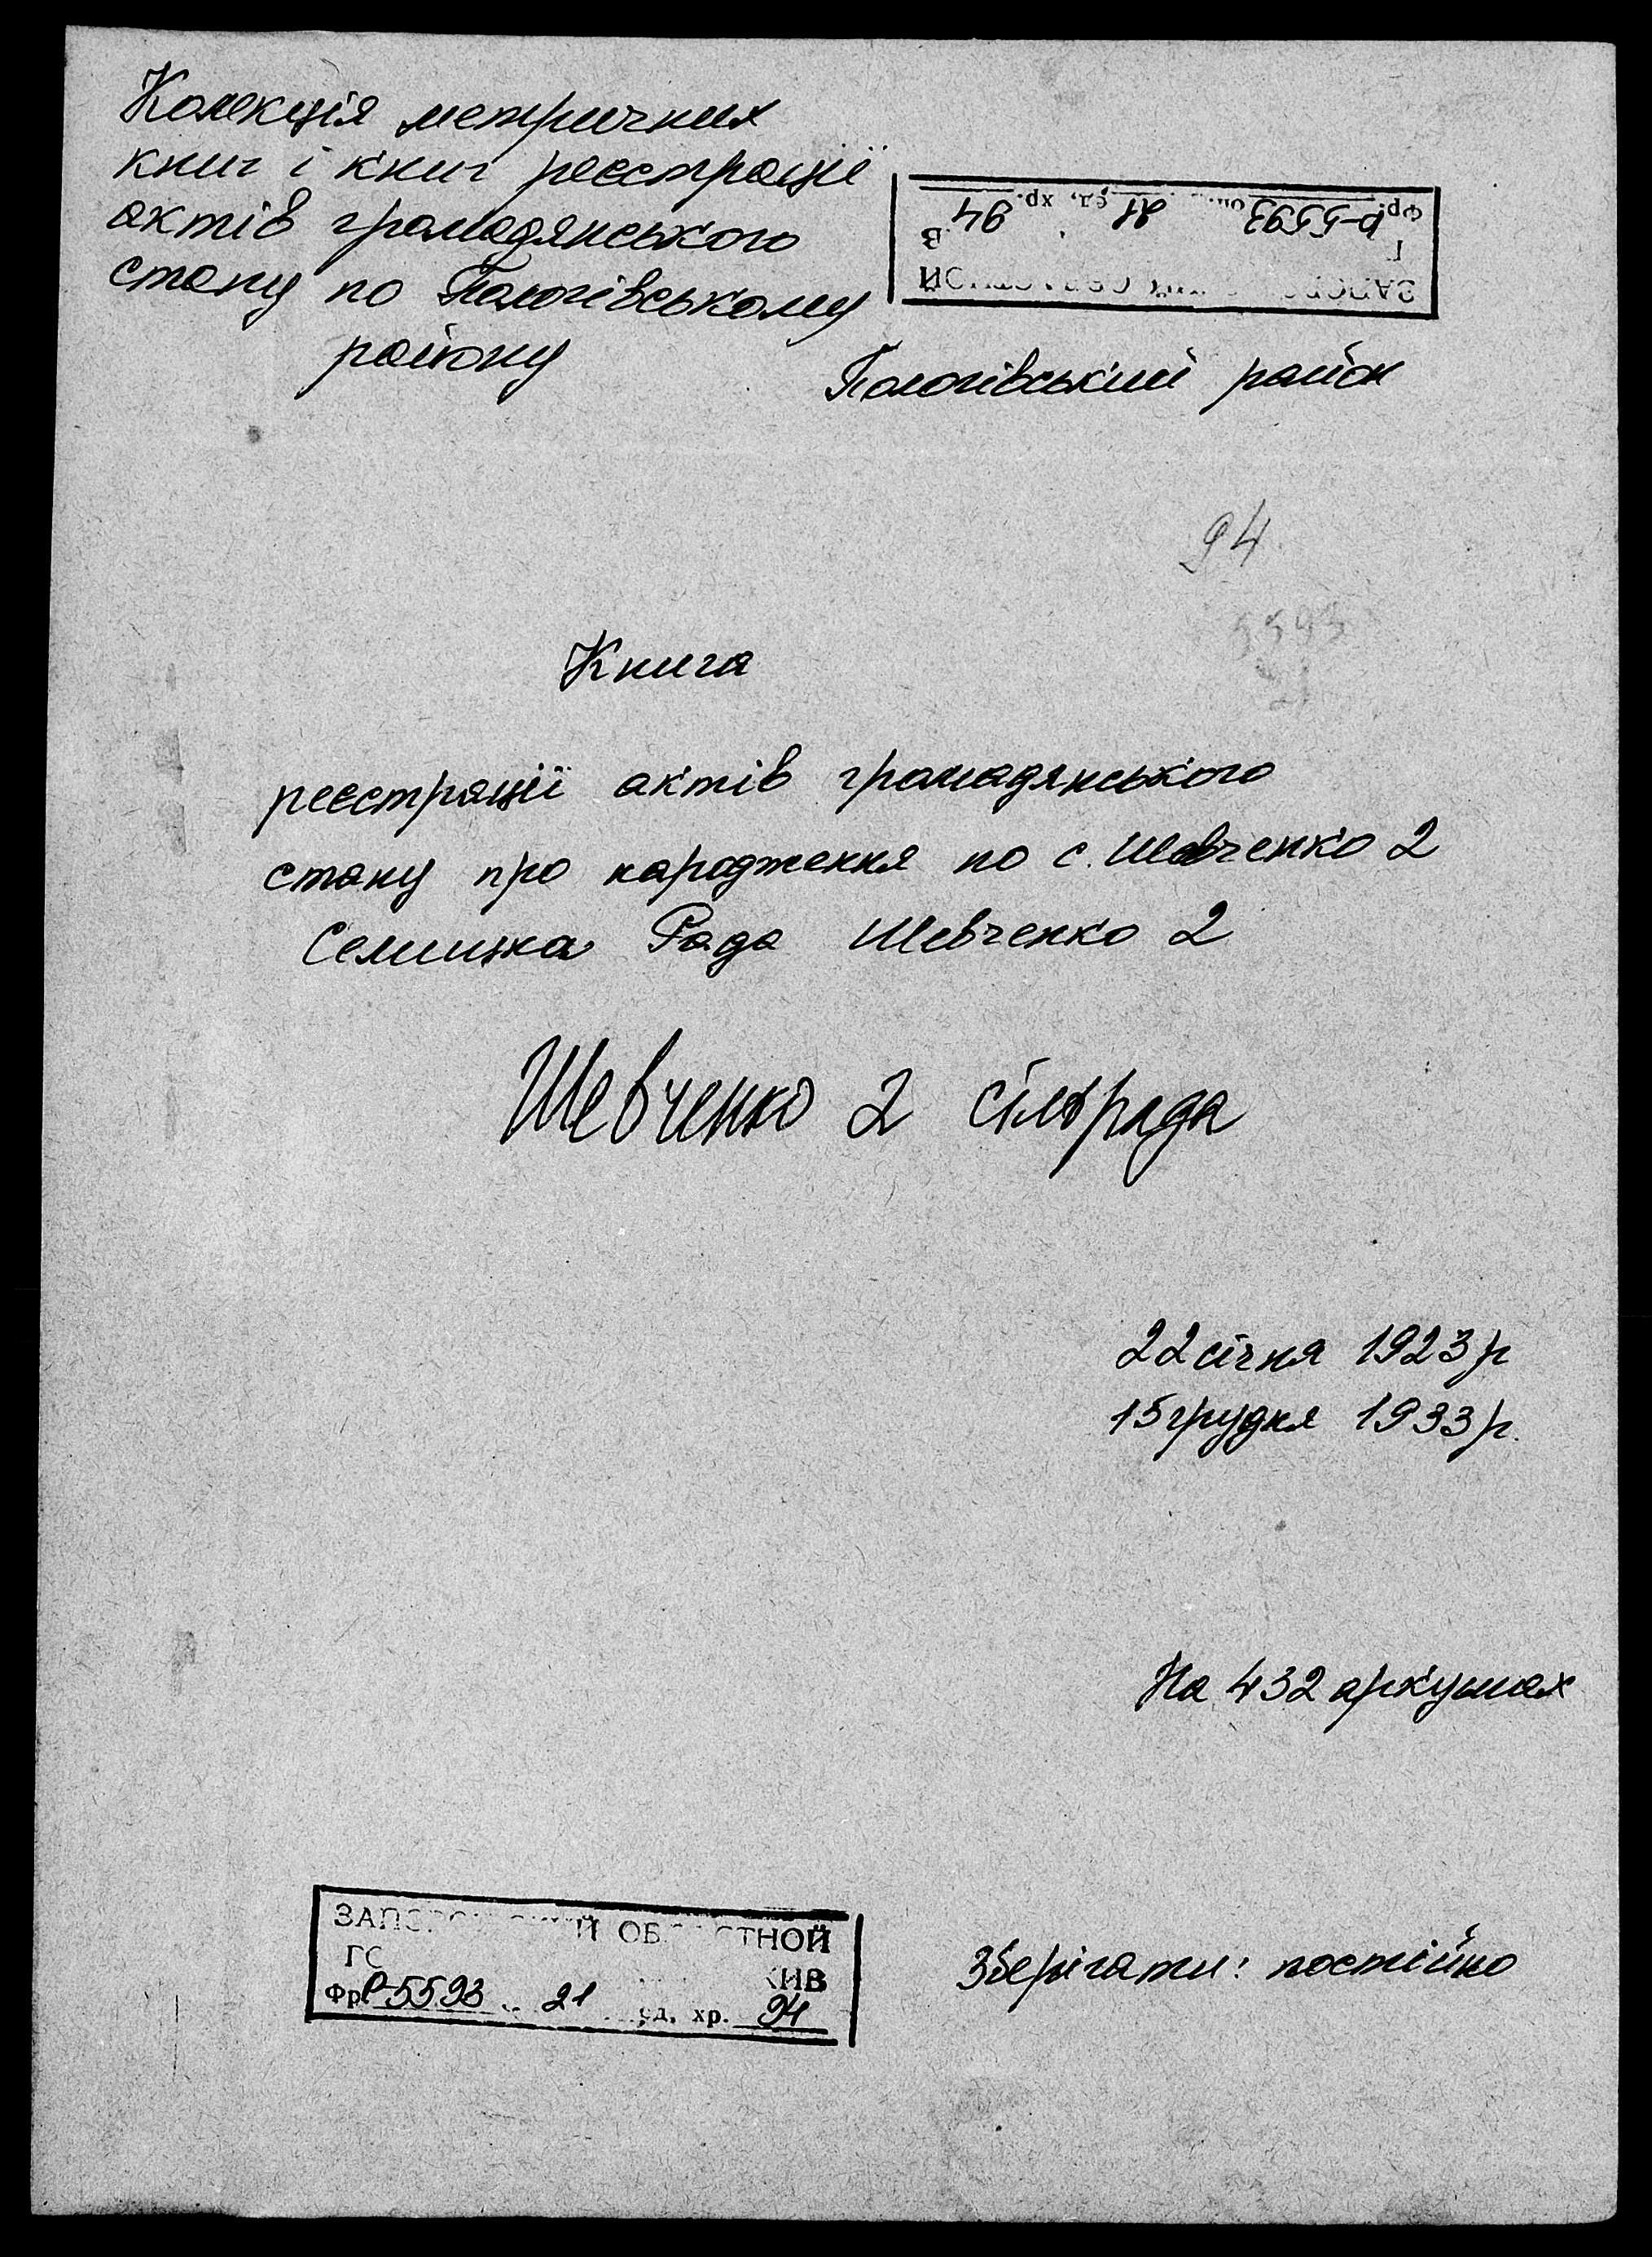 Колекція метричних
книг і книг реєстрації
актів громадянського
стану по Пологівському
району
Фр. Р-5593 оп. 21 ед. хр. 94
Пологівський район
94
5593
21
Книга
реєстрації актів громадянського
стану про народження по с. Шевченко 2
Селищна Рада Шевченко 2
Шевченко 2 сільрада
22 січня 1923 р
15 грудня 1933 р.
На 432 аркушах
Зберігати: постійно
ЗАПОРОЖСКИЙ ОБЛАСТНОЙ
Фр. Р-5593 21 ед. хр. 94